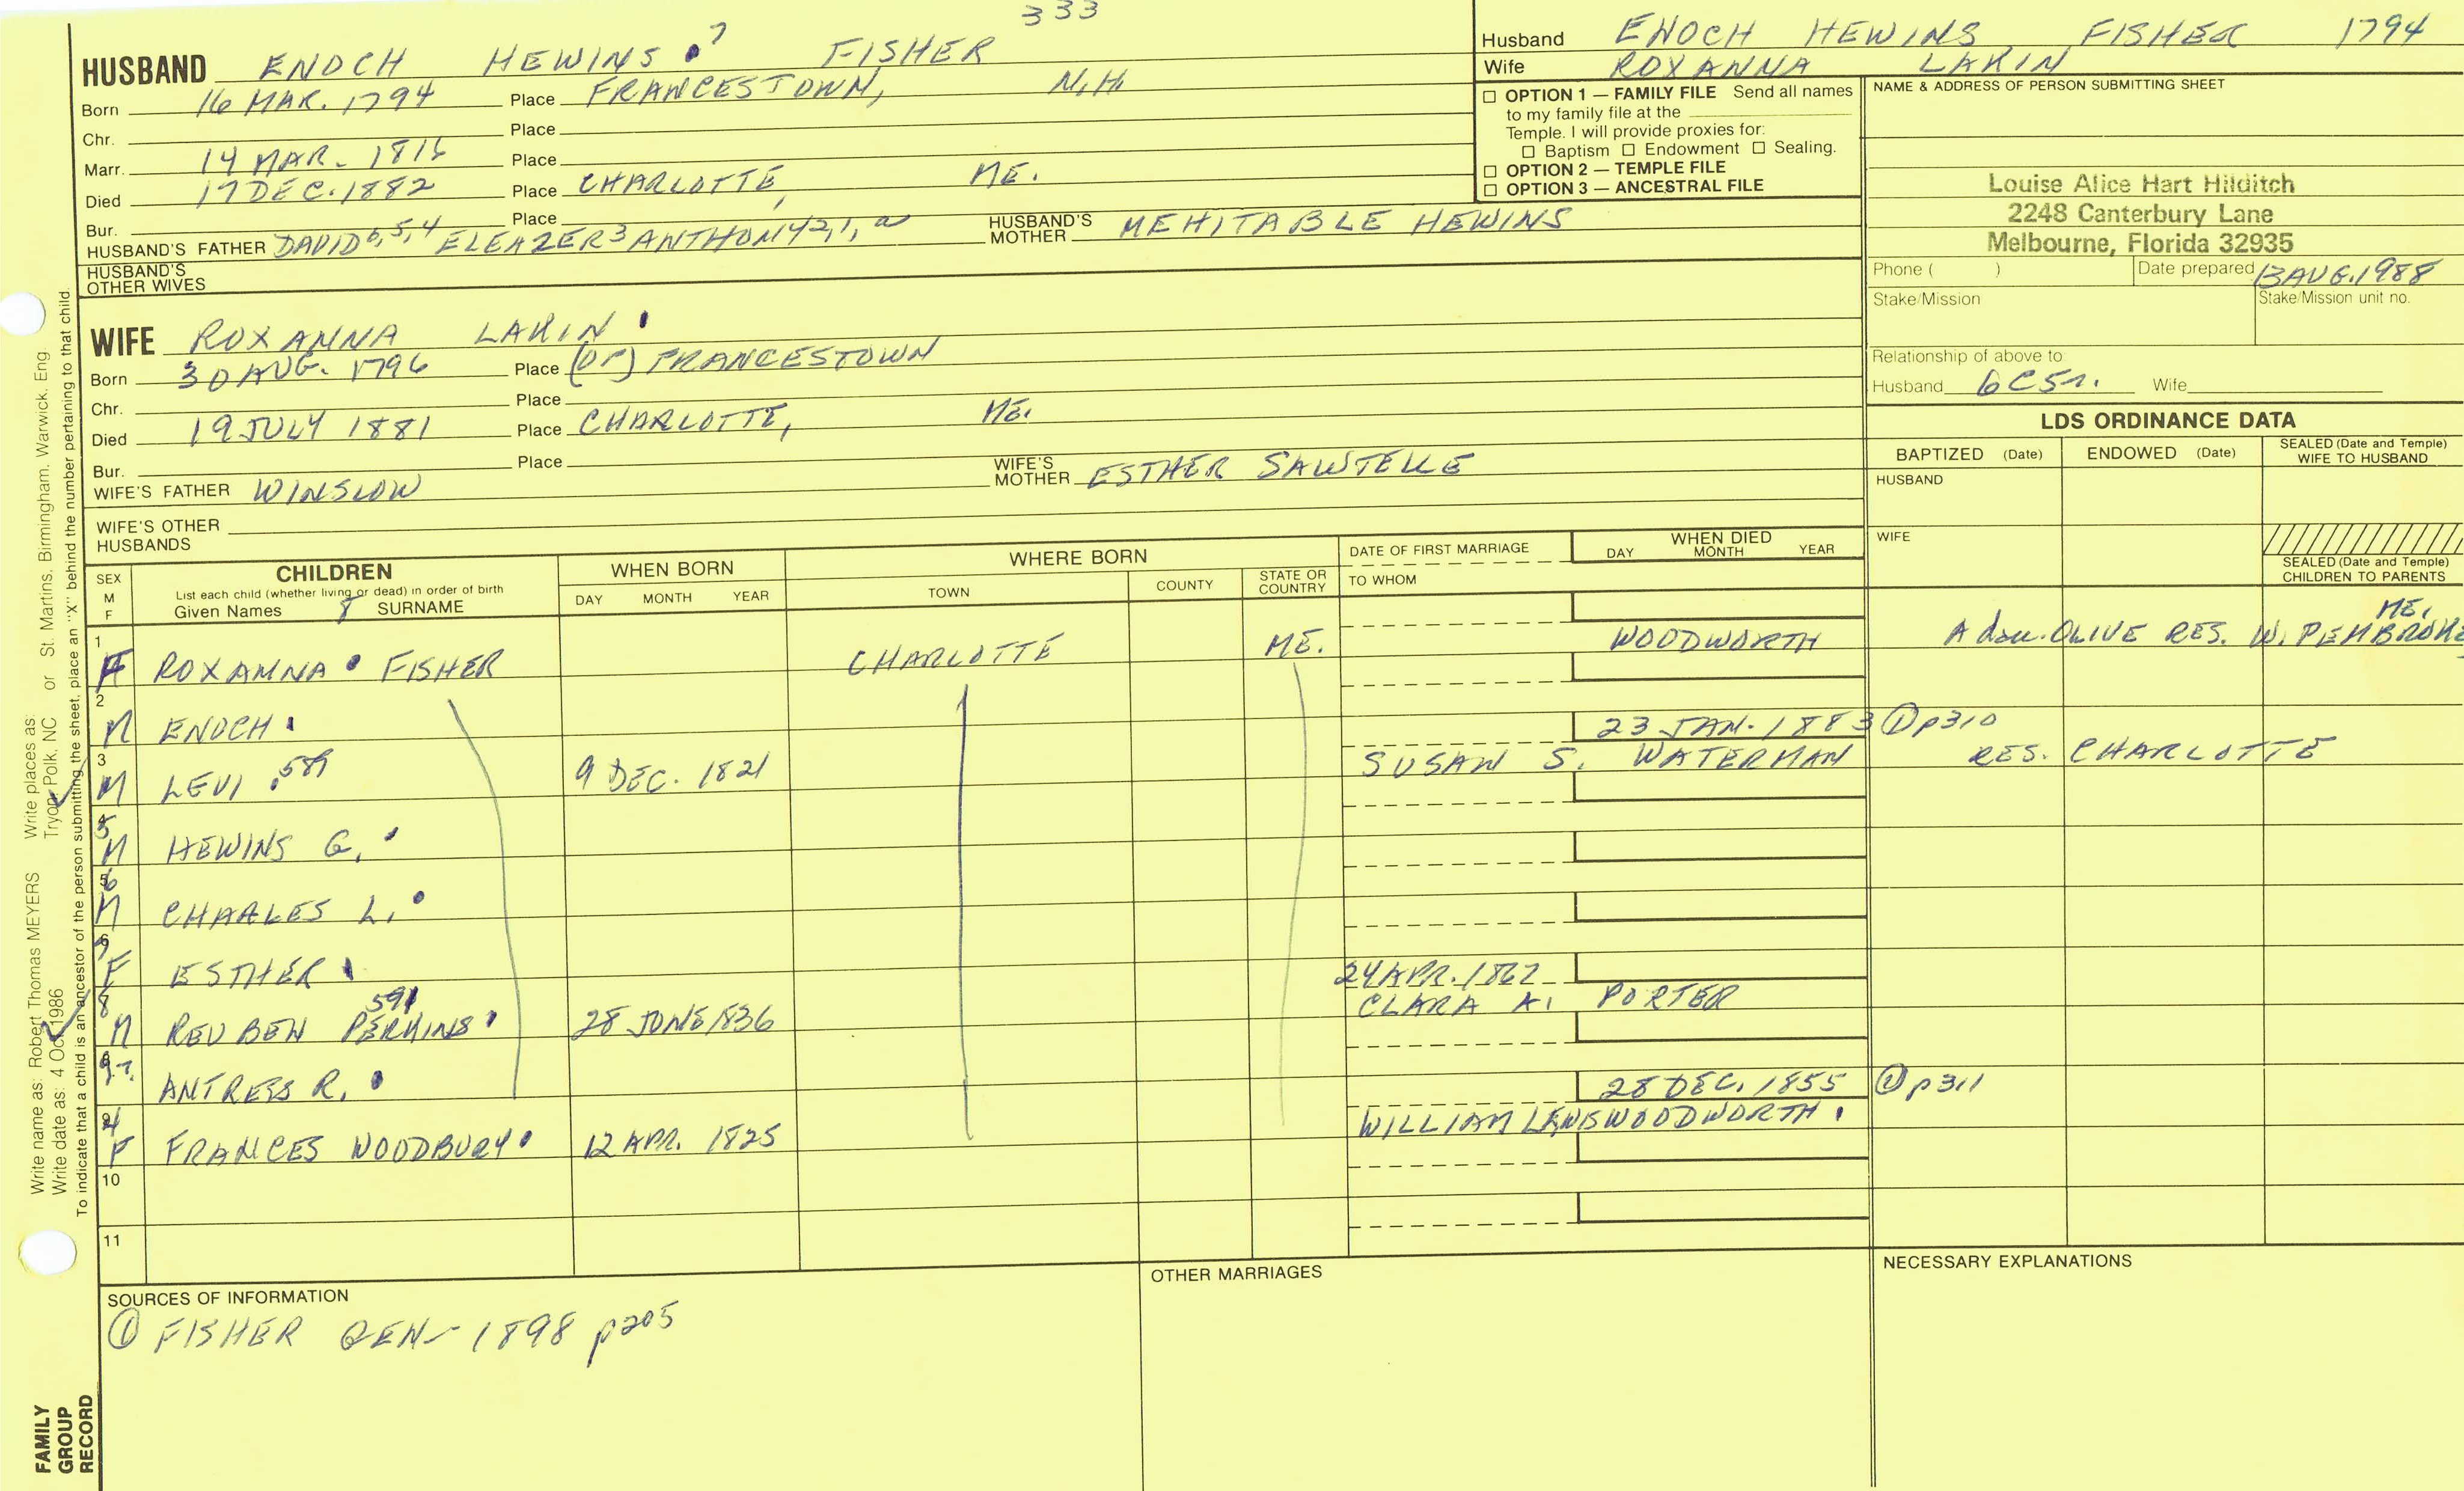 333
HUSBAND ENOCH HEWINS 7 FISHER
Born 16 MAR. 1794 Place FRANCESTOWN, N.H.
Chr. Place
Marr. 14 MAR. 1816 Place
Died 17 DEC. 1882 Place CHARLOTTE, ME.
Bur. Place
HUSBAND'S FATHER DAVID 6,5,4 ELEAZER 3 ANTHONY 2,1,a HUSBAND'S MOTHER MEHITABLE HEWINS
HUSBAND'S OTHER WIVES
WIFE ROXANNA LAKIN
Born 30 AUG. 1796 Place (OF) FRANCESTOWN
Chr. Place
Died 19 JULY 1881 Place CHARLOTTE, ME.
Bur. Place
WIFE'S FATHER WINSLOW WIFE'S MOTHER ESTHER SAWTELLE
WIFE'S OTHER HUSBANDS
Husband ENOCH HEWINS FISHER 1794
Wife ROXANNA LAKIN
☐ OPTION 1 — FAMILY FILE Send all names
to my family file at the
Temple. I will provide proxies for:
☐ Baptism ☐ Endowment ☐ Sealing.
☐ OPTION 2 — TEMPLE FILE
☐ OPTION 3 — ANCESTRAL FILE
NAME & ADDRESS OF PERSON SUBMITTING SHEET
Louise Alice Hart Hilditch
2248 Canterbury Lane
Melbourne, Florida 32935
Phone ( ) Date prepared 13 AUG. 1988
Stake/Mission Stake/Mission unit no.
Relationship of above to:
Husband 6C5r. Wife
LDS ORDINANCE DATA
BAPTIZED (Date) ENDOWED (Date) SEALED (Date and Temple) WIFE TO HUSBAND
HUSBAND
WIFE
SEALED (Date and Temple) CHILDREN TO PARENTS
SEX M F CHILDREN WHEN BORN WHERE BORN DATE OF FIRST MARRIAGE WHEN DIED
List each child (whether living or dead) in order of birth DAY MONTH YEAR TOWN COUNTY STATE OR COUNTRY TO WHOM DAY MONTH YEAR
Given Names 8 SURNAME
1 F ROXANNA FISHER CHARLOTTE ME. WOODWORTH A dau. OLIVE RES. W. PEMBROKE ME.
2 M ENOCH 23 JAN. 1883 ① p310
3 M LEVI 589 9 DEC. 1821 SUSAN S. WATERMAN RES. CHARLOTTE
5 M HEWINS G.
6 M CHARLES L.
7 F ESTHER
8 M REUBEN PERKINS 591 28 JUNE 1836 24 APR. 1862 CLARA A. PORTER
9 ANTRESS R. 28 DEC. 1855 ① p311
4 F FRANCES WOODBURY 12 APR. 1825 WILLIAM LEWIS WOODWORTH
10
11
SOURCES OF INFORMATION OTHER MARRIAGES NECESSARY EXPLANATIONS
① FISHER GEN 1898 p205
Write name as: Robert Thomas MEYERS Write places as: St. Martins, Birmingham, Warwick, Eng.
Write date as: 4 Oct 1986 Tryon, Polk, NC or
To indicate that a child is an ancestor of the person submitting the sheet, place an "X" behind the number pertaining to that child.
FAMILY
GROUP
RECORD